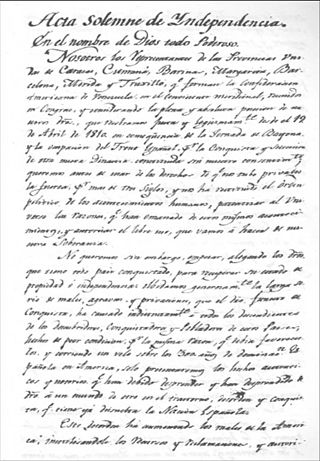 Acta Solemne de Independencia.
En el nombre de Dios todo Poderoso.
Nosotros los Representantes de las Provincias Uni-
das de Caracas, Cumaná, Barinas, Margarita, Bar-
celona, Mérida y Truxillo, qe forman la Confederacion
Americana de Venezuela en el continente meridional, reunidos
en Congreso, y considerando la plena y absoluta posesion de nues-
tros dros, que recobramos justa y legitimamte desde el 19
de Abril de 1810, en conseqüencia de la Jornada de Bayona,
y la ocupacion del Trono Español, pr la Conquista y sucesion
de otra nueva Dinastia, constituida sin nuestro consentimto
queremos antes de usar de los derechos de qe nos tubo privados
la fuerza, pr mas de tres Siglos, y nos ha restituido el orden
político de los acontecimientos humanos, patentizar al Uni-
verso las razones, qe han emanado de estos mismos aconteci-
mientos, y autorizan el libre uso, que vamos á hacer de nues-
tra Soberania.
No queremos sin embargo, empezar, alegando los dros,
que tiene todo pais conquistado, para recuperar su estado de
propiedad é independencia: olvidamos generosamte la larga
serie de males, agravios y privaciones, que el dro funesto de
Conquista, ha causado indistintamte á todos los descendientes
de los descubridores, Conquistadores y Pobladores de estos Paises,
hechos de peor condicion, pr la misma razon, qe debia favorecer-
los; y corriendo un velo sobre los 300 años de dominaon Es-
pañola en America, solo presentaremos los hechos autenti-
cos y notorios, qe han debido desprender y han desprendido de
dro á un mundo de otro en el trastorno, desorden y conquis-
ta, qe tiene ya disuelta la Nacion Española.
Este desorden ha aumentado los males de la Ame-
rica; inutilizandole los recursos y reclamaciones, y autori-